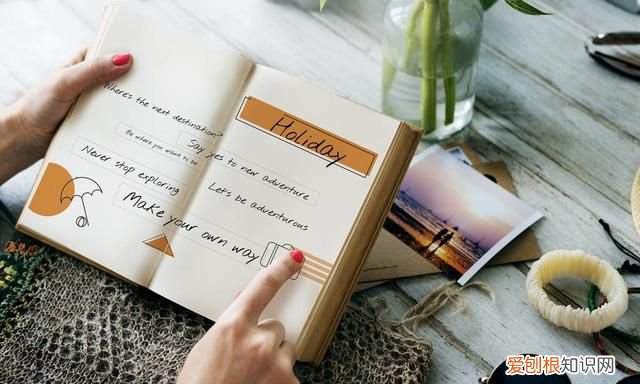 Where's the next destination?
Be where you want to be
Say yes to new adventure
Never stop exploring
Let's be adventurous
Make your own way
Holiday
爱刨根知识网